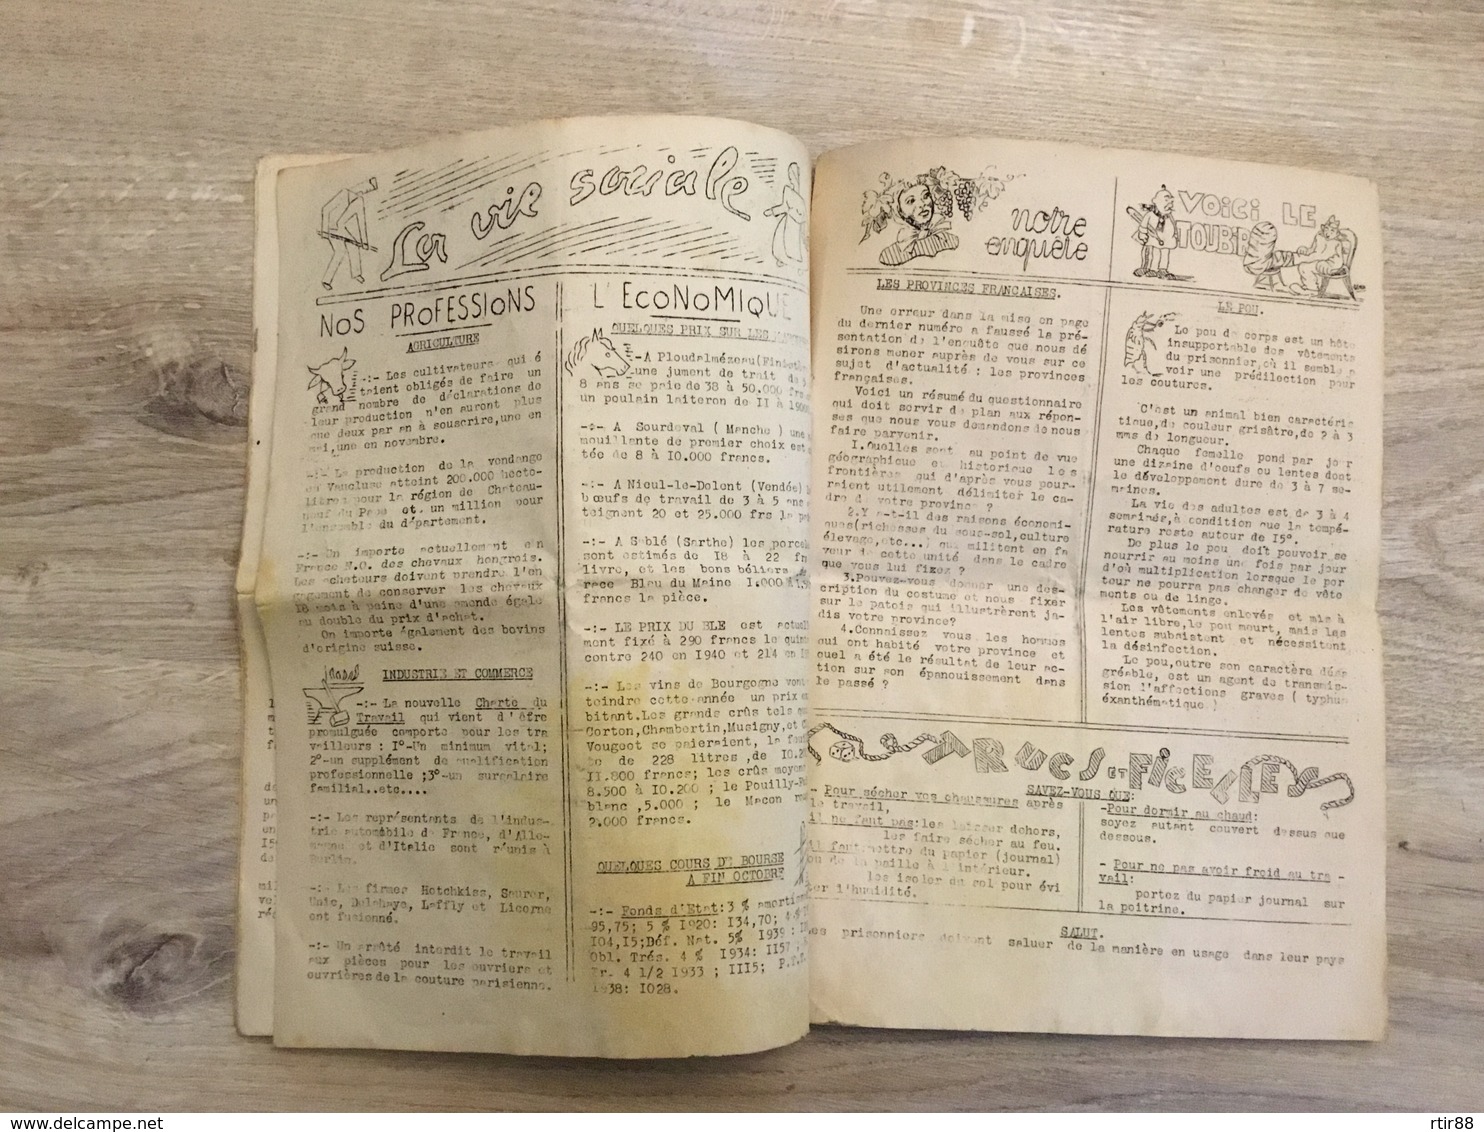 La vie sociale
NOS PROFESSIONS
AGRICULTURE
-:- Les cultivateurs qui é
taient obligés de faire un
grand nombre de déclarations de
leur production n'en auront plus
que deux par an à souscrire, une en
mai, une en novembre.
-:- La production de la vendange
en Vaucluse atteint 200.000 hecto-
litres pour la région de Chateau-
neuf du Pape et un million pour
l'ensemble du département.
-:- On importe actuellement en
France N.O. des chevaux hongrois.
Les acheteurs doivent prendre l'en
gagement de conserver les chevaux
18 mois à peine d'une amende égale
au double du prix d'achat.
On importe également des bovins
d'origine suisse.
INDUSTRIE ET COMMERCE
-:- La nouvelle Charte du
Travail qui vient d'être
promulguée comporte pour les tra
vailleurs : 1°-Un minimum vital;
2°-un supplément de qualification
professionnelle ;3°-un sursalaire
familial..etc....
-:- Les représentants de l'indus-
trie automobile de France, d'Alle-
magne et d'Italie sont réunis à
Berlin.
-:- Les firmes Hotchkiss, Saurer,
Unic, Delahaye, Laffly et Licorne
ont fusionné.
-:- Un arrêté interdit le travail
aux pièces pour les ouvriers et
ouvrières de la couture parisienne.
L'ECONOMIQUE
QUELQUES PRIX SUR LES
-A Ploudalmézeau(Finistère)
une jument de trait de
8 ans se paie de 38 à 50.000 frs
un poulain laiteron de II à
-:- A Sourdeval ( Manche ) une
mouillante de premier choix est
tée de 8 à I0.000 francs.
-:- A Nieul-le-Dolent (Vendée)
bœufs de travail de 3 à 5 ans
teignent 20 et 25.000 frs la
-:- A Sablé (Sarthe) les porcel
sont estimés de I8 à 22 fr
livre, et les bons béliers
race Bleu du Maine I.000 à
francs la pièce.
-:- LE PRIX DU BLE est actuel
ment fixé à 290 francs le quin
contre 240 en I940 et 2I4 en
-:- Les vins de Bourgogne vont
teindre cette année un prix
bitant.Les grands crûs tels que
Corton,Chambertin,Musigny,et C
Vougeot se paieraient, la
de 228 litres ,de I0.2
II.800 francs; les crûs moyens
8.500 à I0.200 ; le Pouilly-
blanc ,5.000 ; le Macon
2.000 francs.
QUELQUES COURS DE BOURSE
A FIN OCTOBRE
-:- Fonds d'Etat:3 % amorti
95,75; 5 % I920: I34,70; 4
I04,I5;Déf. Nat. 5% I939 :
Obl. Trés. 4 % I934: II57
4 I/2 I933 ; III5;
I938: I028.
notre
enquête
LES PROVINCES FRANÇAISES.
Une erreur dans la mise en page
du dernier numéro a faussé la pré-
sentation de l'enquête que nous dé
sirons mener auprès de vous sur ce
sujet d'actualité : les provinces
françaises.
Voici un résumé du questionnaire
qui doit servir de plan aux répon-
ses que nous vous demandons de nous
faire parvenir.
I.Quelles sont au point de vue
géographique et historique les
frontières qui d'après vous pour-
raient utilement délimiter le ca-
dre de votre province ?
2.Y a-t-il des raisons économi-
ques(richesses du sous-sol,culture
élevage,etc...) qui militent en fa
veur de cette unité dans le cadre
que vous lui fixez ?
3.Pouvez-vous donner une des-
cription du costume et nous fixer
sur le patois qui illustrèrent ja-
dis votre province?
4.Connaissez vous les hommes
qui ont habité votre province et
quel a été le résultat de leur ac-
tion sur son épanouissement dans
le passé ?
VOICI LE
TOUBIB
LE POU.
Le pou de corps est un hôte
insupportable des vêtements
du prisonnier,où il semble a
voir une prédilection pour
les coutures.
C'est un animal bien caractéris
tique,de couleur grisâtre,de 2 à 3
mms de longueur.
Chaque femelle pond par jour
une dizaine d'oeufs ou lentes dont
le développement dure de 3 à 7 se-
maines.
La vie des adultes est de 3 à 4
semaines,à condition que la tempé-
rature reste autour de I5°.
De plus le pou doit pouvoir se
nourrir au moins une fois par jour
d'où multiplication lorsque le por
teur ne pourra pas changer de vête
ments ou de linge.
Les vêtements enlevés et mis à
l'air libre,le pou meurt, mais les
lentes subsistent et nécessitent
la désinfection.
Le pou,outre son caractère désa
gréable, est un agent de transmis-
sion d'affections graves ( typhus
exanthématique )
TRUCS ET FICELLES
SAVEZ-VOUS QUE:
- Pour sécher vos chaussures après
le travail,
il ne faut pas:les laisser dehors,
les faire sécher au feu.
il faut:mettre du papier (journal)
ou de la paille à l'intérieur.
les isoler du sol pour évi
ter l'humidité.
-Pour dormir au chaud:
soyez autant couvert dessus que
dessous.
- Pour ne pas avoir froid au tra -
vail:
portez du papier journal sur
la poitrine.
SALUT.
Les prisonniers doivent saluer de la manière en usage dans leur pays
delcampe.net
rtir88